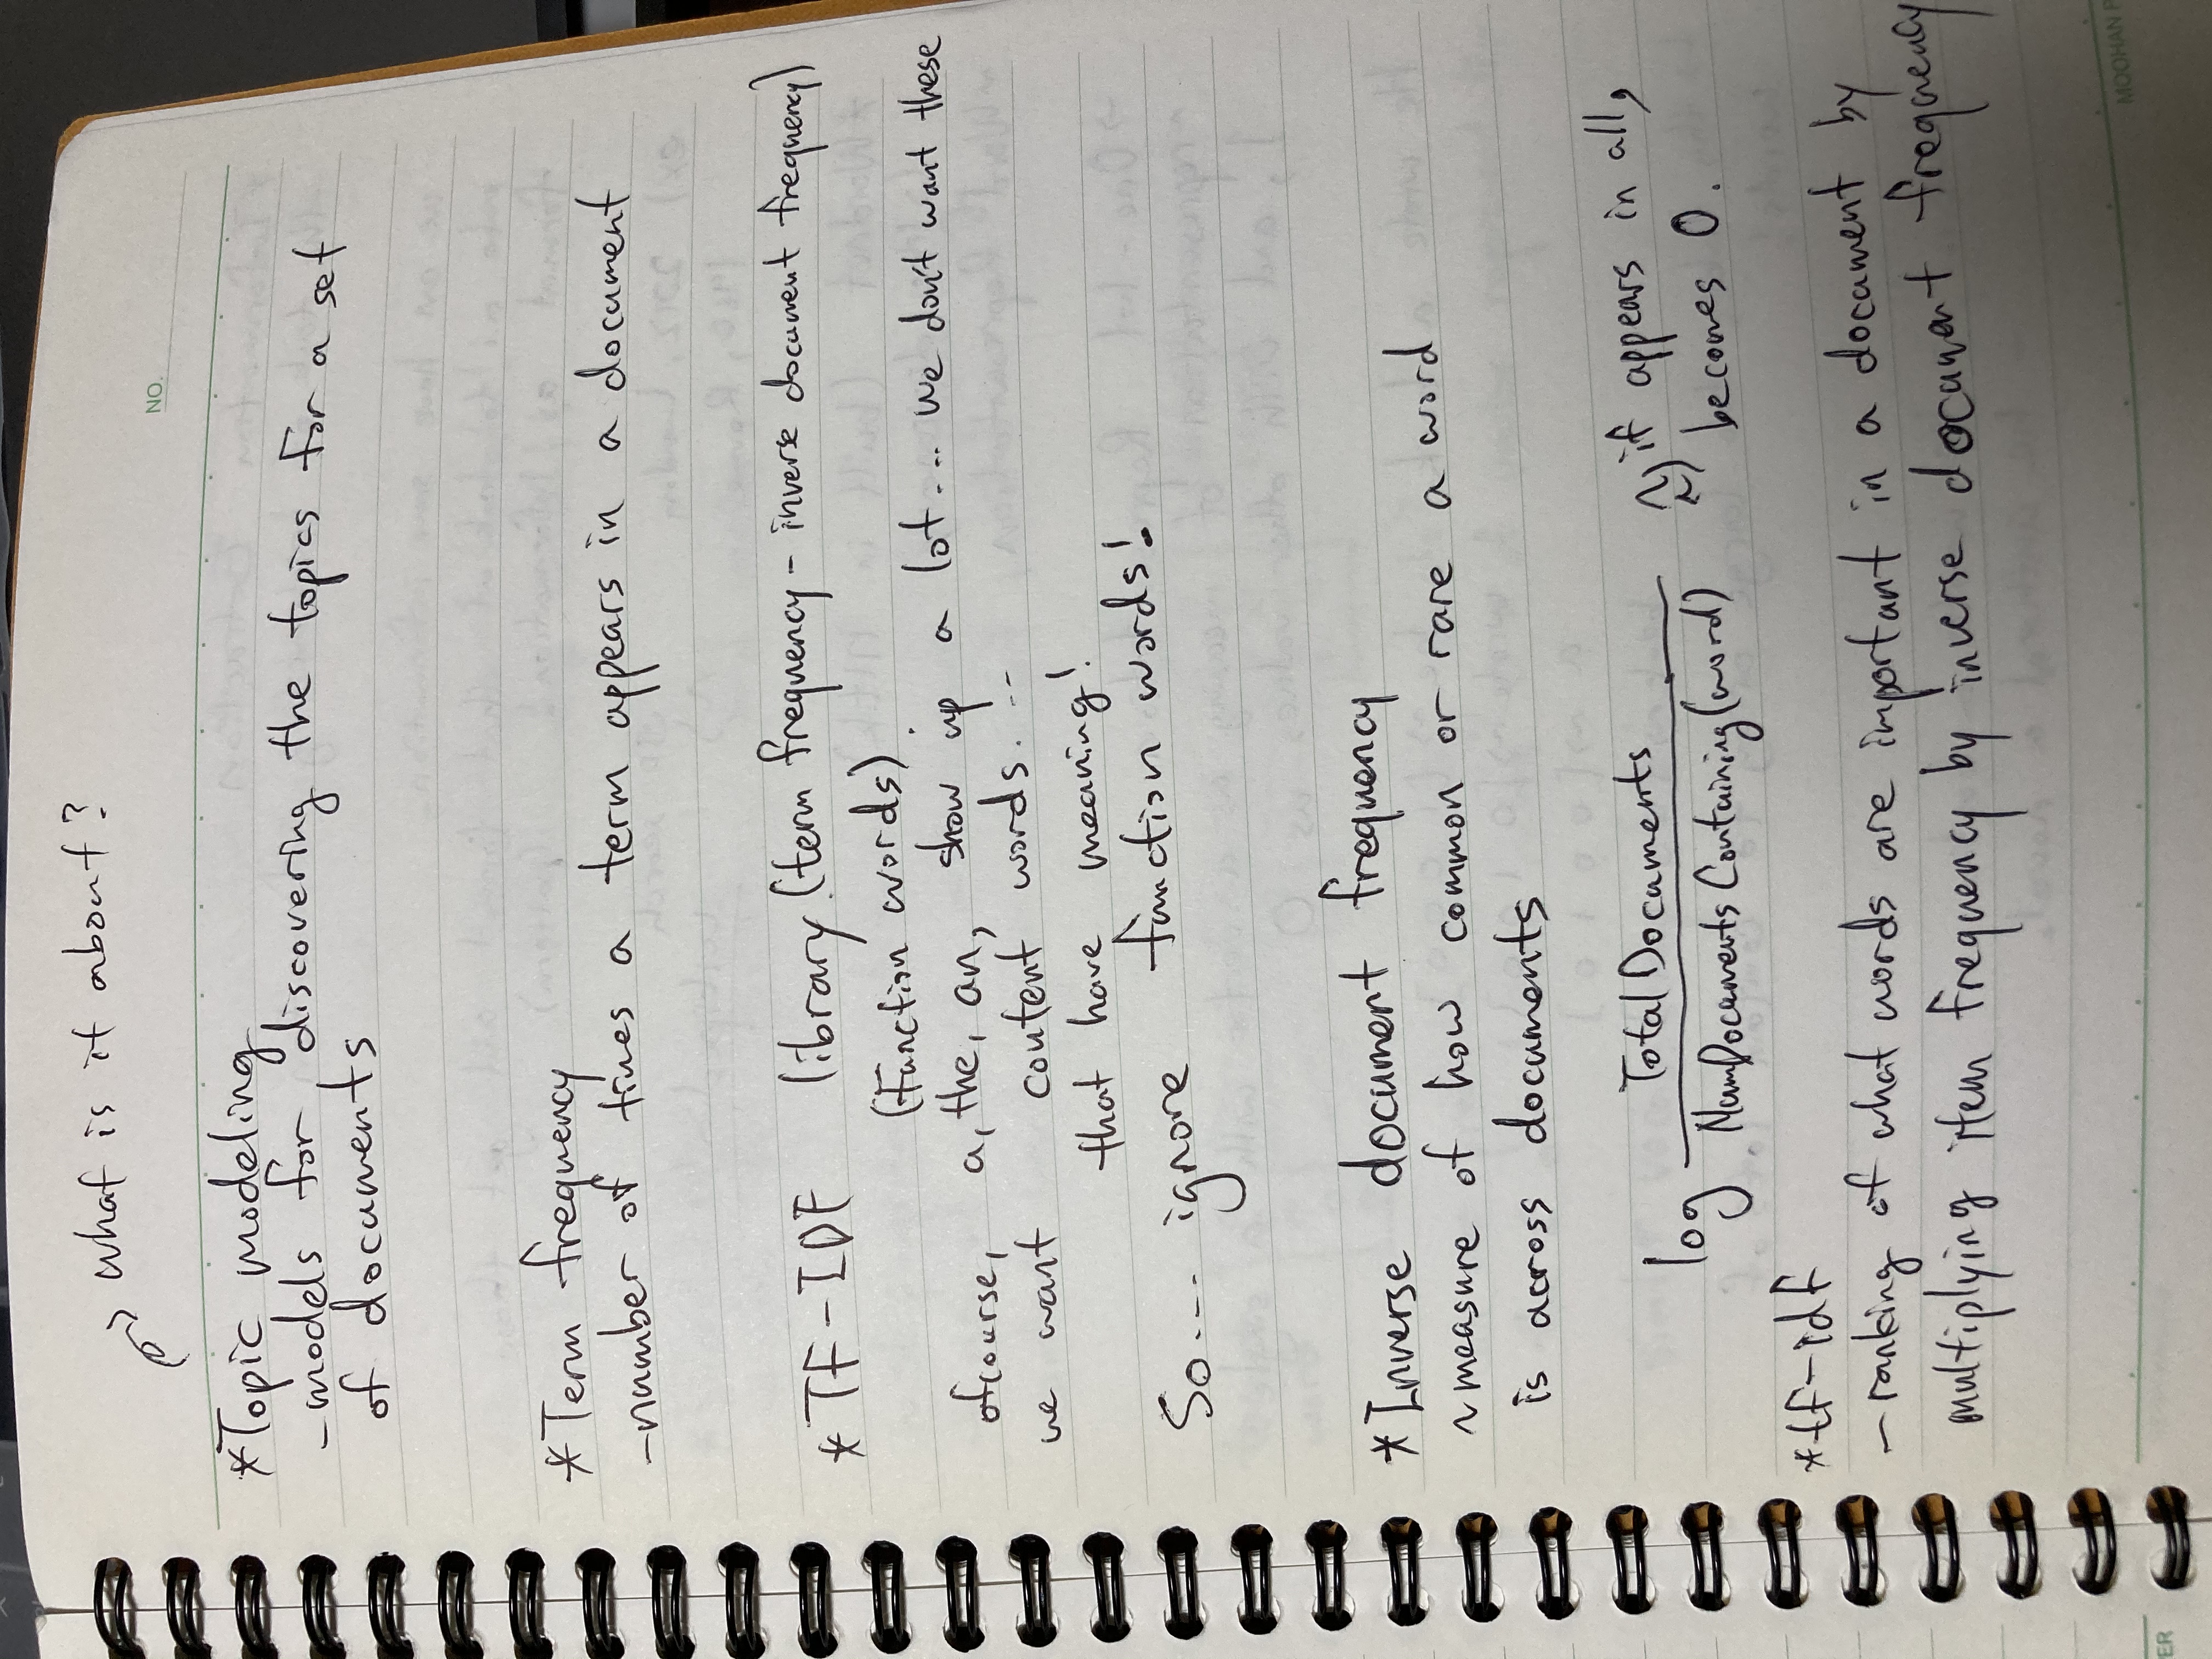 what is it about?
NO.
*Topic modeling
-models for discovering the topics for a set
of documents
*Term frequency
-number of times a term appears in a document
*TF-IDF library (term frequency - inverse document frequency)
(function words)
ofcourse, a, the, an, show up a lot... we don't want these
we want content words...
that have meaning!
So.... ignore function words!
*Inverse document frequency
~measure of how common or rare a word
is across documents
log TotalDocuments / NumDocuments Containing(word) if appears in all,
becomes 0.
*tf-idf
-ranking of what words are important in a document by
multiplying item frequency by inverse document frequency
MOOHAN P
ER